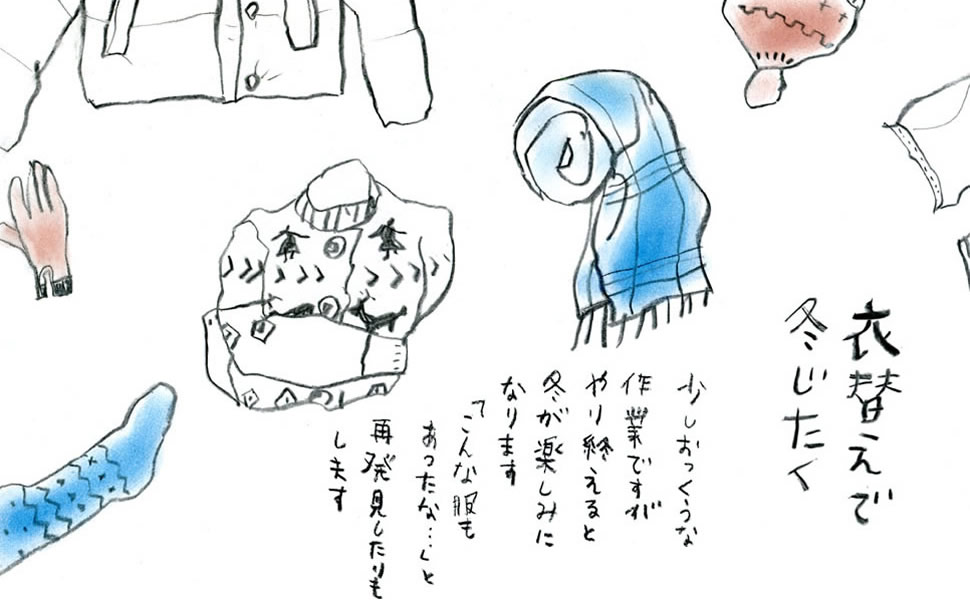 衣替えで
冬じたく
少しおっくうな
作業ですが
やり終えると
冬が楽しみに
なります
「こんな服も
あったな…」と
再発見したりも
します